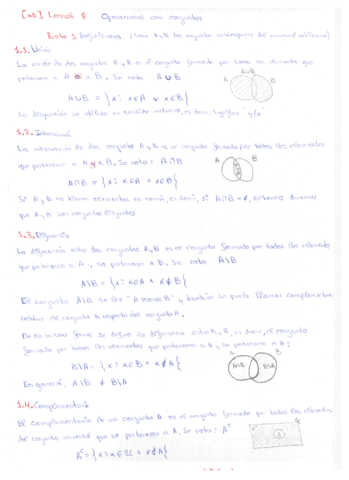 [MD] Lección 8 Operaciones con conjuntos
Punto 1 Definiciones (Sean A, B dos conjuntos cualesquiera del universal arbitrario)
1.1. Unión
La unión de dos conjuntos A y B es el conjunto formado por todos los elementos que
pertenecen a A o a B. Se nota A∪B
A∪B = {x : x∈A ∨ x∈B}
A∪B
A B
La disyunción se utiliza en sentido inclusivo, es decir, significa "y/o"
1.2. Intersección
La intersección de dos conjuntos A y B es el conjunto formado por todos los elementos
que pertenecen a A y a B. Se nota: A∩B
A∩B = {x : x∈A ∧ x∈B}
A B
Si A y B no tienen elementos en común, es decir, si A∩B = ∅, entonces diremos
que A y B son conjuntos disjuntos
1.3. Diferencia
La diferencia entre dos conjuntos A y B es el conjunto formado por todos los elementos
que pertenecen a A y no pertenecen a B. Se nota A\B
A\B = {x : x∈A ∧ x∉B}
El conjunto A\B se lee "A menos B" y también se puede llamar complementario
relativo del conjunto B respecto del conjunto A.
De la misma forma se define la diferencia entre B y A, es decir, el conjunto
formado por todos los elementos que pertenecen a B y no pertenecen a A:
B\A = {x : x∈B ∧ x∉A}
A B
A\B B\A
En general, A\B ≠ B\A
1.4. Complementario
El complementario de un conjunto A es el conjunto formado por todos los elementos
del conjunto universal que no pertenecen a A. Se nota: Aᶜ
Aᶜ = {x : x∈U ∧ x∉A}
A